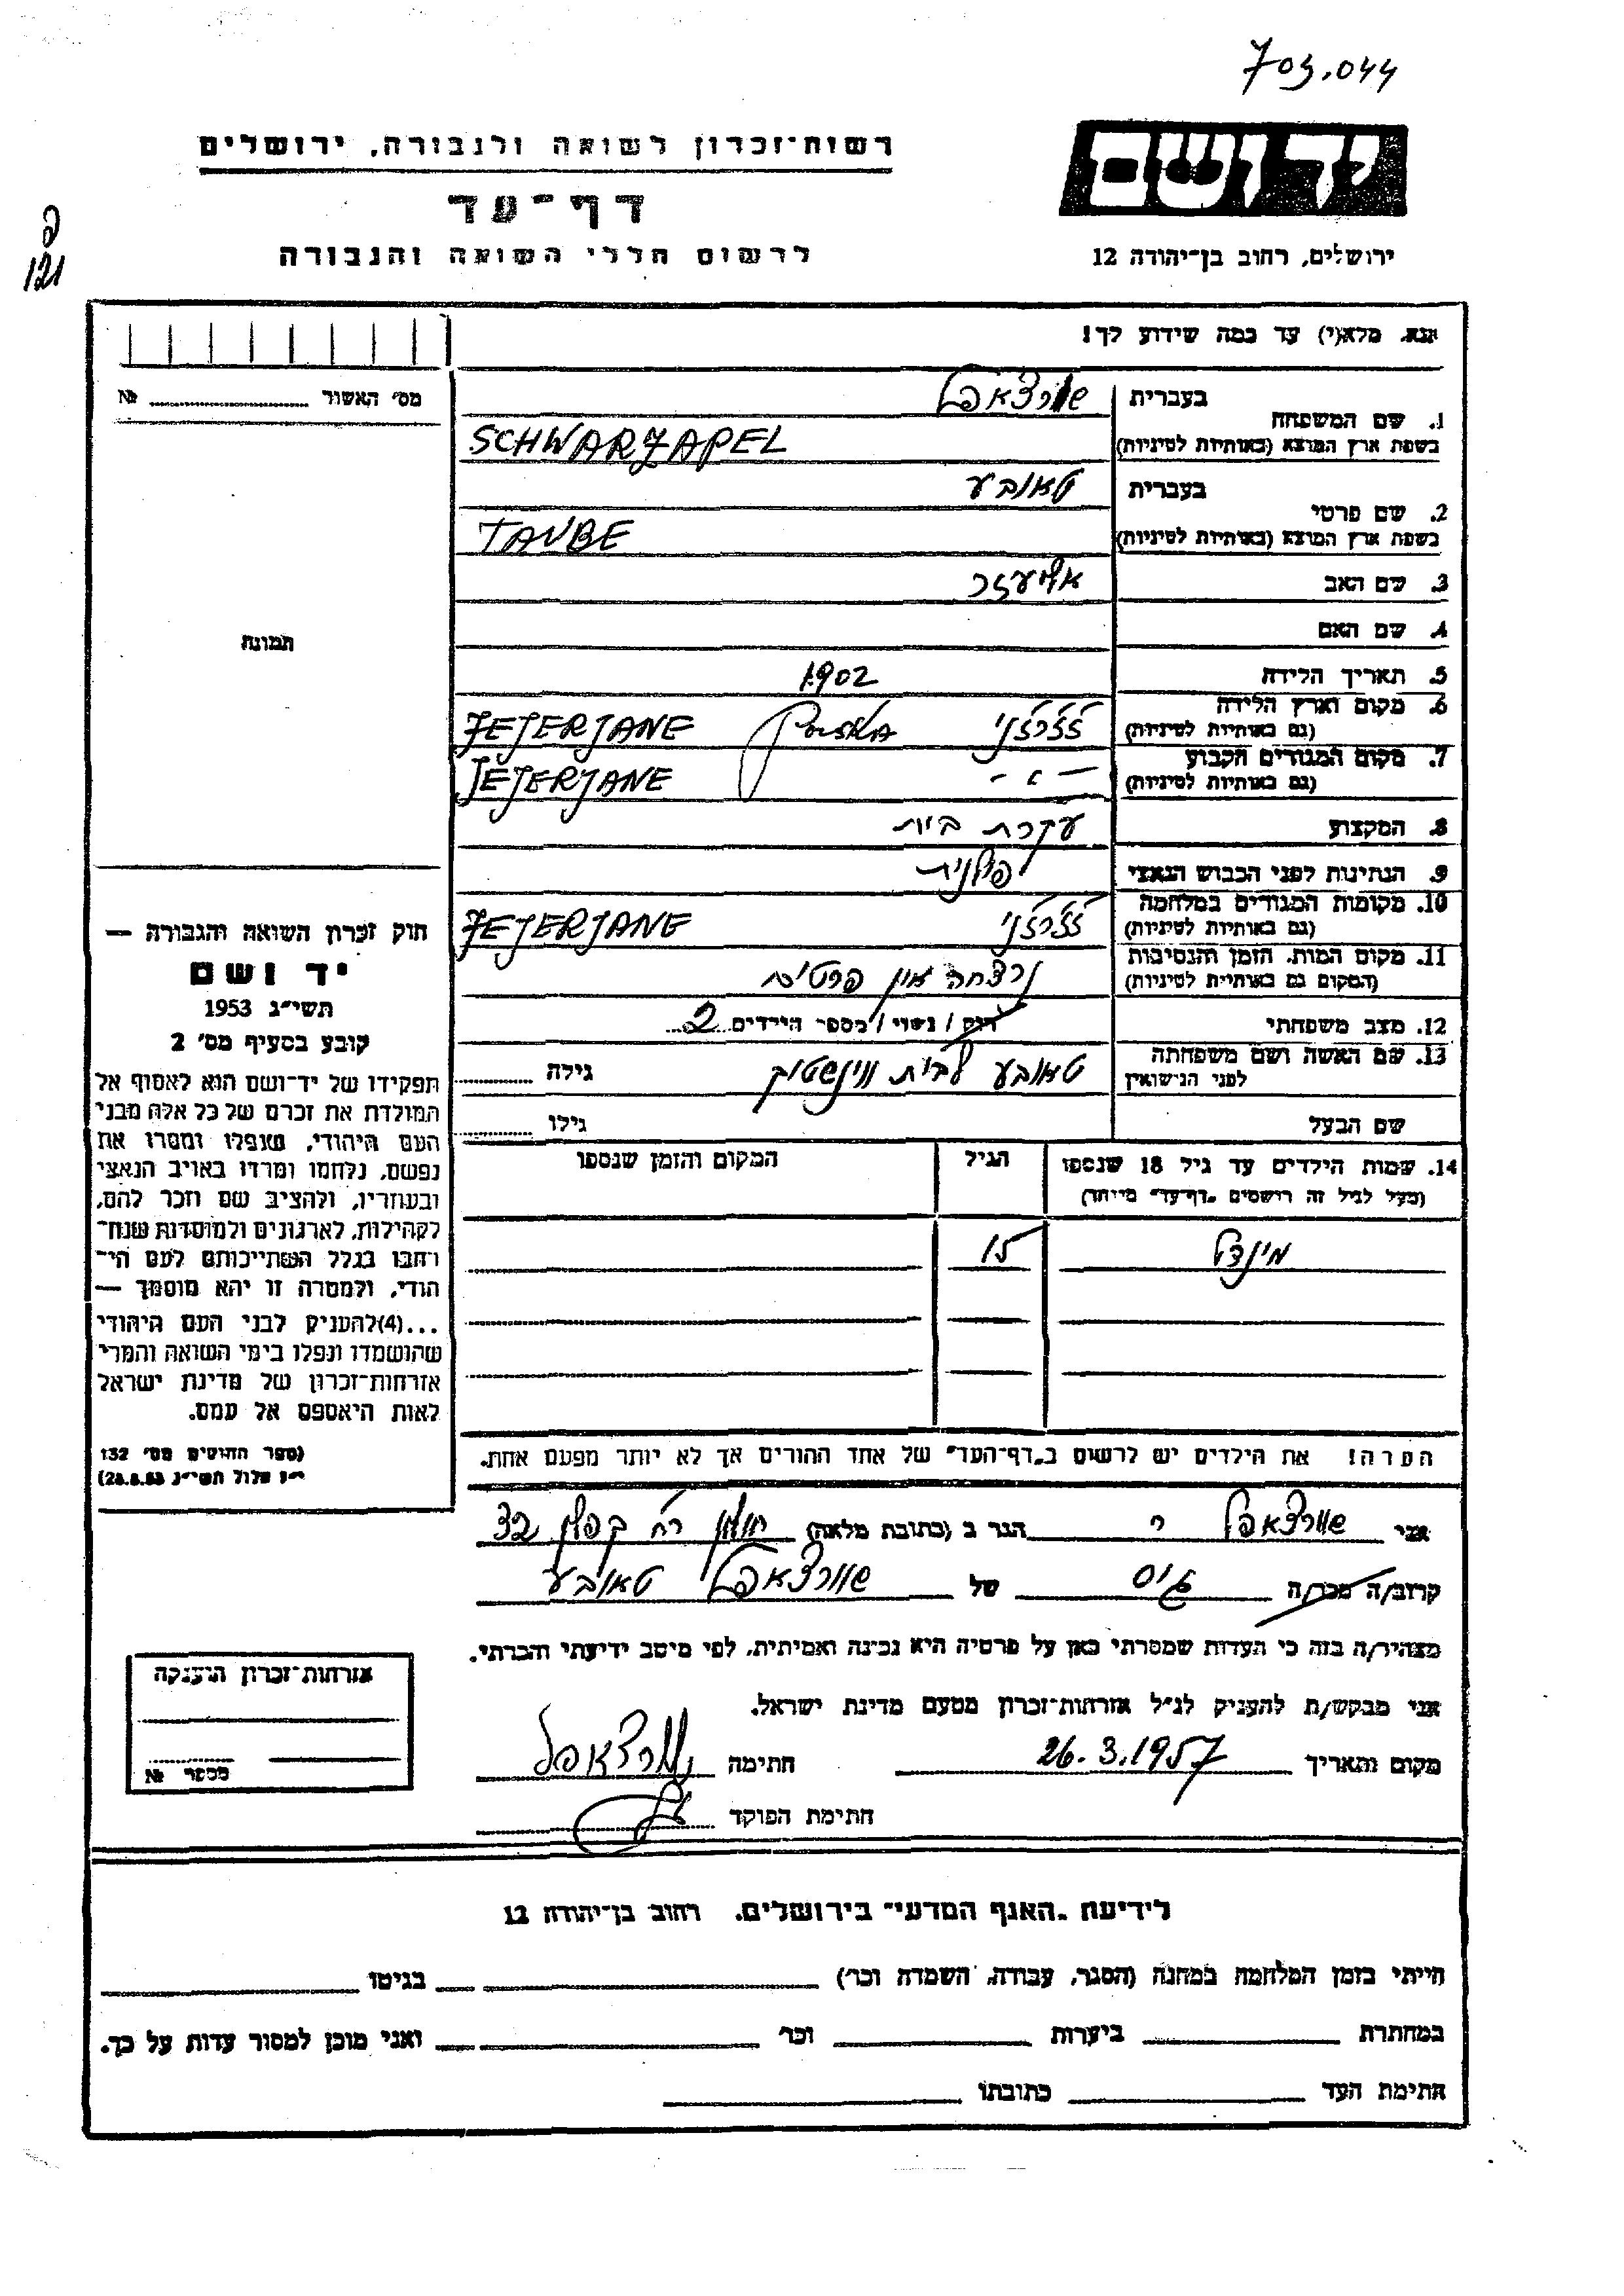 703.044
רשות־זכרון לשואה ולגבורה, ירושלים
יד ושם
דף־עד
לרשום חללי השואה והגבורה
ירושלים, רחוב בן־יהודה 12
121
נא, מלא(י) עד כמה שידוע לך!
מס׳ האשור № 
1. שם המשפחה
בעברית שוורצאפל
בשפת ארץ המוצא (באותיות לטיניות) SCHWARZAPEL
2. שם פרטי
בעברית טאובע
בשפת ארץ המוצא (באותיות לטיניות) TAUBE
3. שם האב אליעזר
4. שם האם
5. תאריך הלידה 1902
6. מקום וארץ הלידה (גם באותיות לטיניות) Polska JEJERJANE
7. מקום המגורים הקבוע (גם באותיות לטיניות) — " — JEJERJANE
8. המקצוע עקרת בית
9. הנתינות לפני הכבוש הנאצי פולנית
10. מקומות המגורים במלחמה (גם באותיות לטיניות) JEJERJANE
11. מקום המות, הזמן והנסיבות (המקום גם באותיות לטיניות) נרצחה אין פרטים
12. מצב משפחתי רוק / נשוי / מספר הילדים 2
13. שם האשה ושם משפחתה לפני הנישואין טאובע לבית גילה
שם הבעל גילו
14. שמות הילדים עד גיל 18 שנספו הגיל המקום והזמן שנספו
(מעל לגיל זה רושמים „דף־עד” מיוחד)
מינדל 15
הערה! את הילדים יש לרשום ב„דף־העד” של אחד ההורים אך לא יותר מפעם אחת.
תמונה
חוק זכרון השואה והגבורה —
יד ושם
תשי״ג 1953
קובע בסעיף מס׳ 2
תפקידו של יד־ושם הוא לאסוף אל
המולדת את זכרם של כל אלה מבני
העם היהודי, שנפלו ומסרו את
נפשם, נלחמו ומרדו באויב הנאצי
ובעוזריו, ולהציב שם וזכר להם,
לקהילות, לארגונים ולמוסדות שנח־
רבו בגלל השתייכותם לעם הי־
הודי, ולמטרה זו יהא מוסמך —
...(4)להעניק לבני העם היהודי
שהושמדו ונפלו בימי השואה והמרי
אזרחות־זכרון של מדינת ישראל
לאות היאספם אל עמם.
(ספר החוקים מס׳ 132
י״ז אלול תשי״ג 28.8.53)
אני שוורצאפל י הגר ב (כתובת מלאה) חולון רח׳ קפלן 32
קרוב/ה מכר/ה גיס של שוורצאפל טאובע
מצהיר/ה בזה כי העדות שמסרתי כאן על פרטיה היא נכונה ואמיתית, לפי מיטב ידיעתי והכרתי.
אני מבקש/ת להעניק לנ״ל אזרחות־זכרון מטעם מדינת ישראל.
מקום ותאריך 26.3.1957 חתימה שוורצאפל
חתימת הפוקד
אזרחות־זכרון הוענקה
מספר №
לידיעת „האגף המדעי” בירושלים, רחוב בן־יהודה 12
הייתי בזמן המלחמה במחנה (הסגר, עבודה, השמדה וכו׳) בגיטו
במחתרת ביערות וכו׳ ואני מוכן למסור עדות על כך.
חתימת העד כתובתו